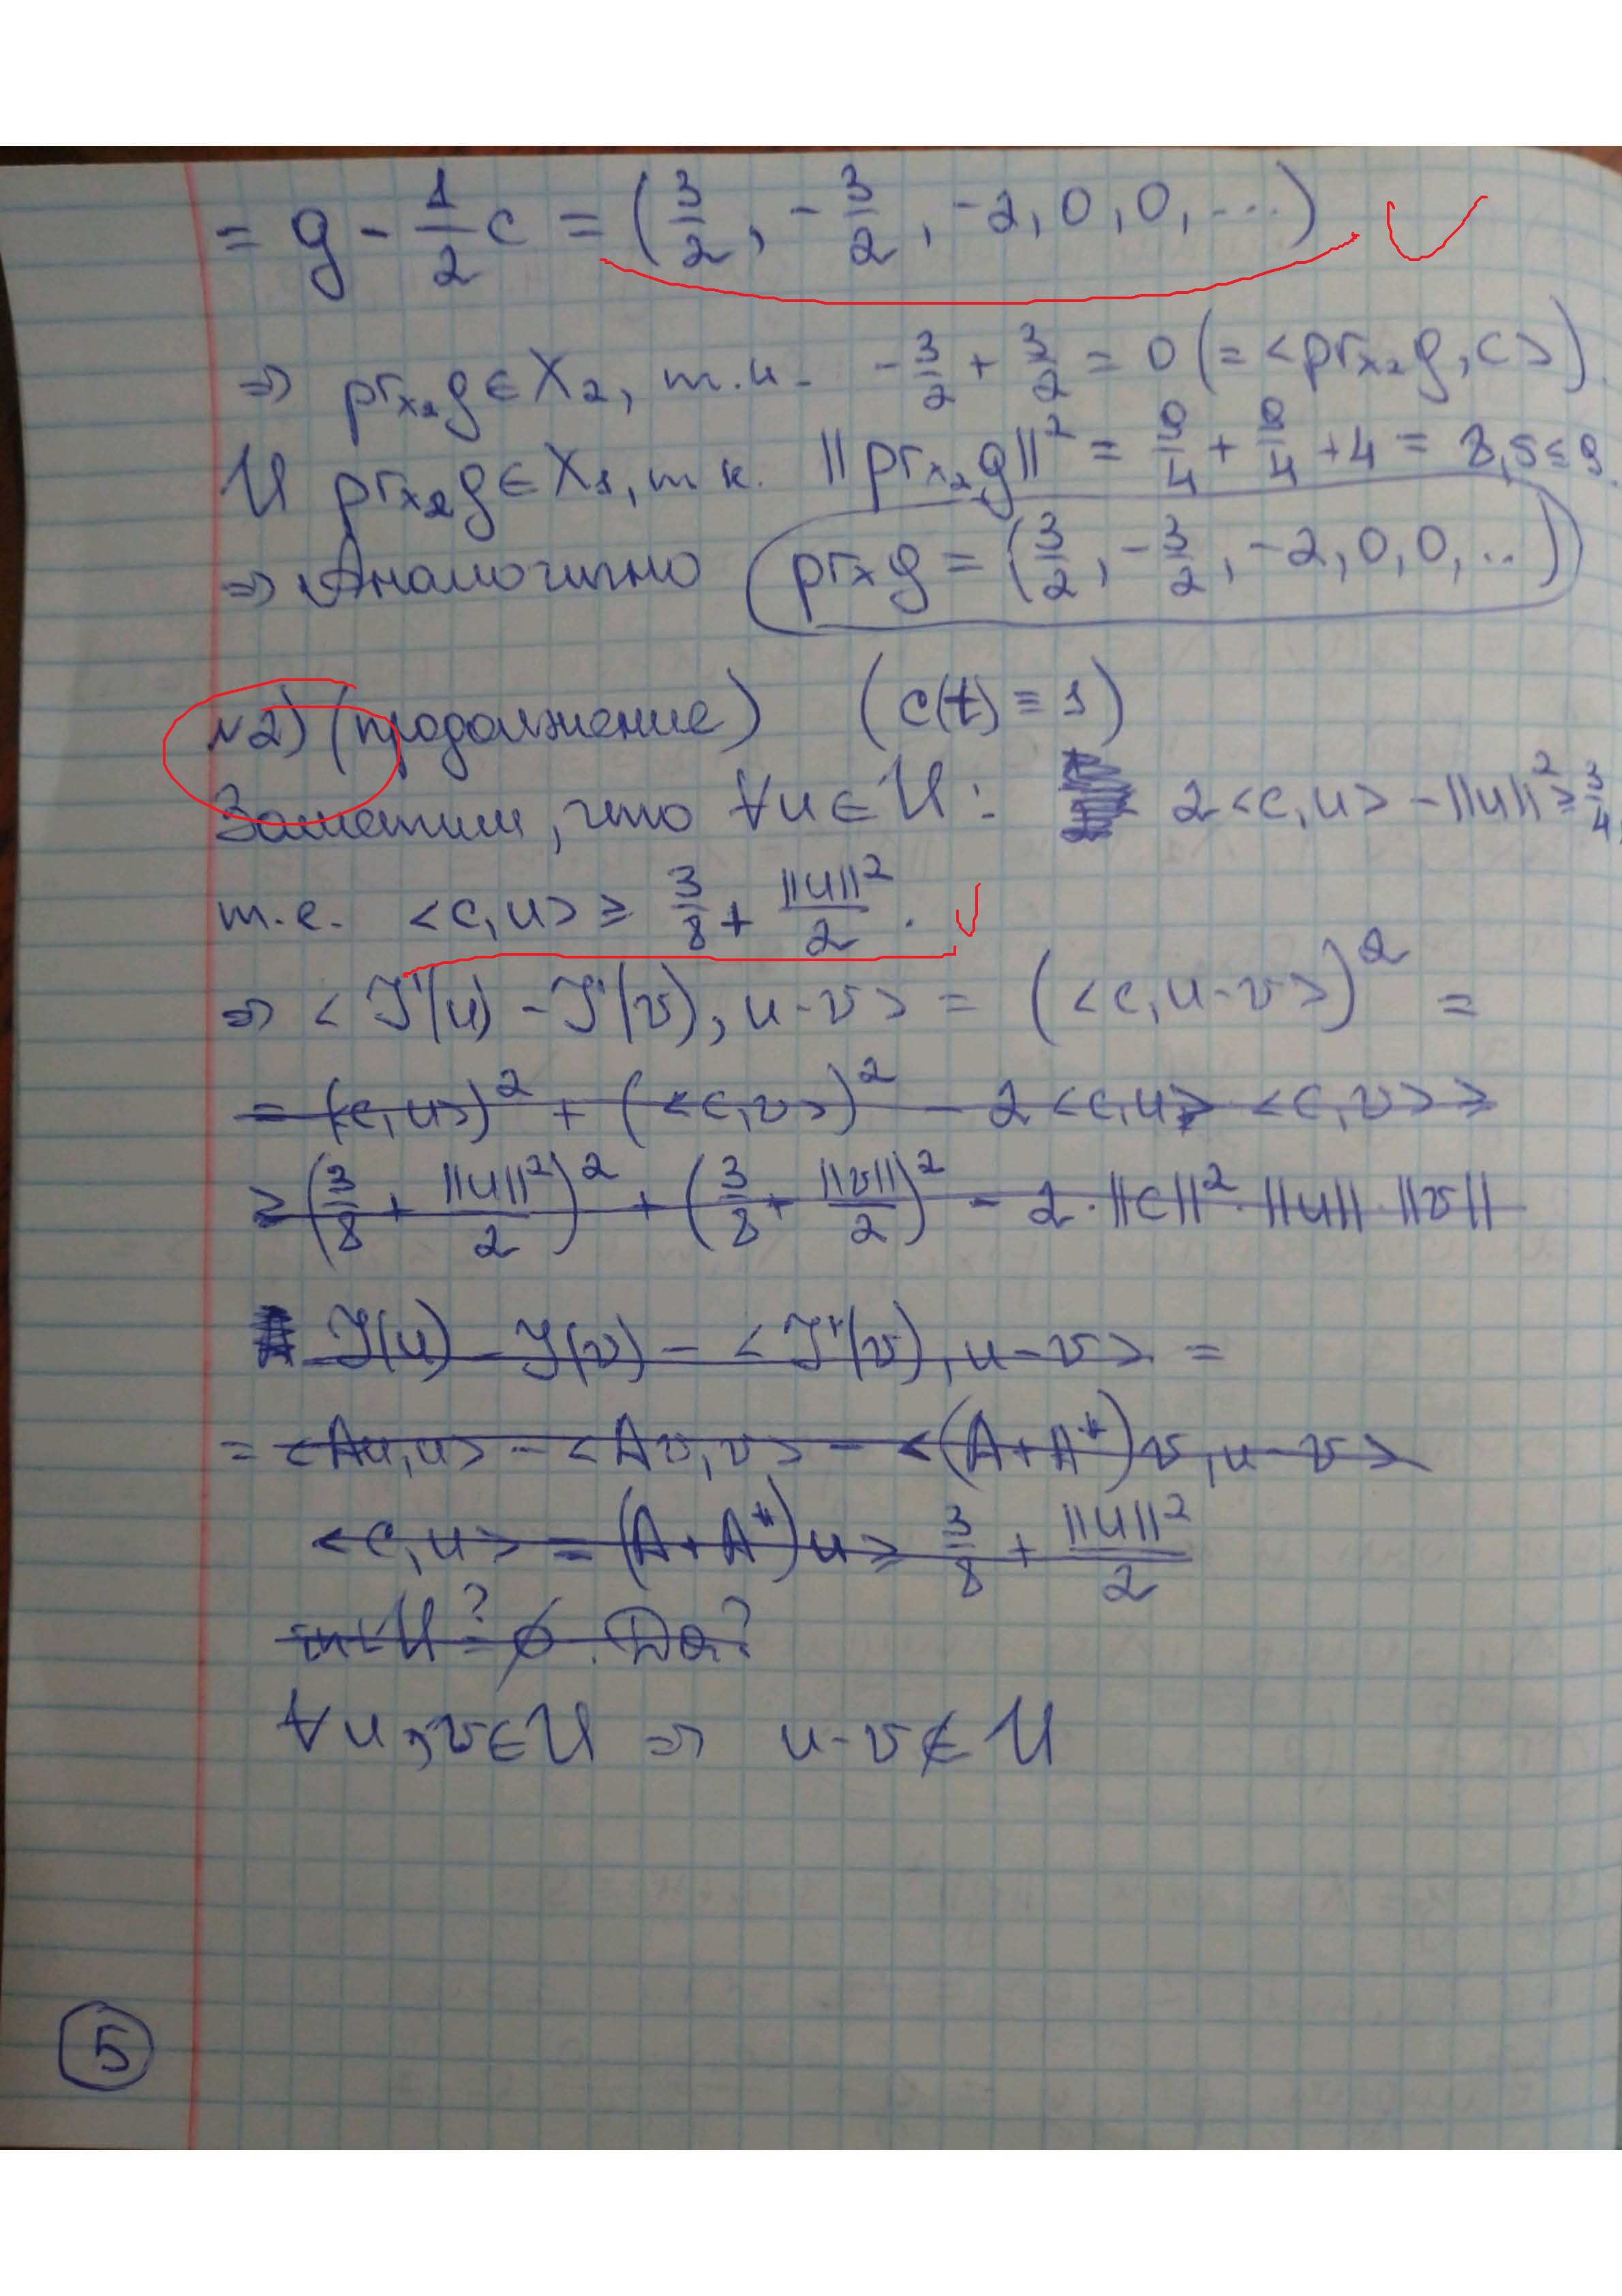 = g - 1/2 c = (3/2, -3/2, -2, 0, 0, ...)
⇒ pr_{X_2} g ∈ X_2, т.к. -3/2 + 3/2 = 0 (= <pr_{X_2} g, c>).
И pr_{X_2} g ∈ X_1, т.к. ||pr_{X_2} g||^2 = 9/4 + 9/4 + 4 = 8,5 ≤ 9.
⇒ Аналогично pr_X g = (3/2, -3/2, -2, 0, 0, ...)
№2) (продолжение) (c(t) ≡ 1)
Заметим, что ∀u ∈ U: 2<c, u> - ||u||^2 ≥ 3/4,
т.е. <c, u> ≥ 3/8 + ||u||^2/2.
⇒ <J'(u) - J'(v), u - v> = (<c, u - v>)^2 =
= (c, u>)^2 + (<c, v>)^2 - 2 <c, u> <c, v> ≥
≥ (3/8 + ||u||^2/2)^2 + (3/8 + ||v||/2)^2 - 2 · ||c||^2 · ||u|| · ||v||
J(u) - J(v) - <J'(v), u - v> =
= <Au, u> - <Av, v> - <(A + A*) v, u - v>
<c, u> = (A + A*) u ≥ 3/8 + ||u||^2/2
int U =? ∅. Да?
∀u, v ∈ U ⇒ u - v ∉ U
5